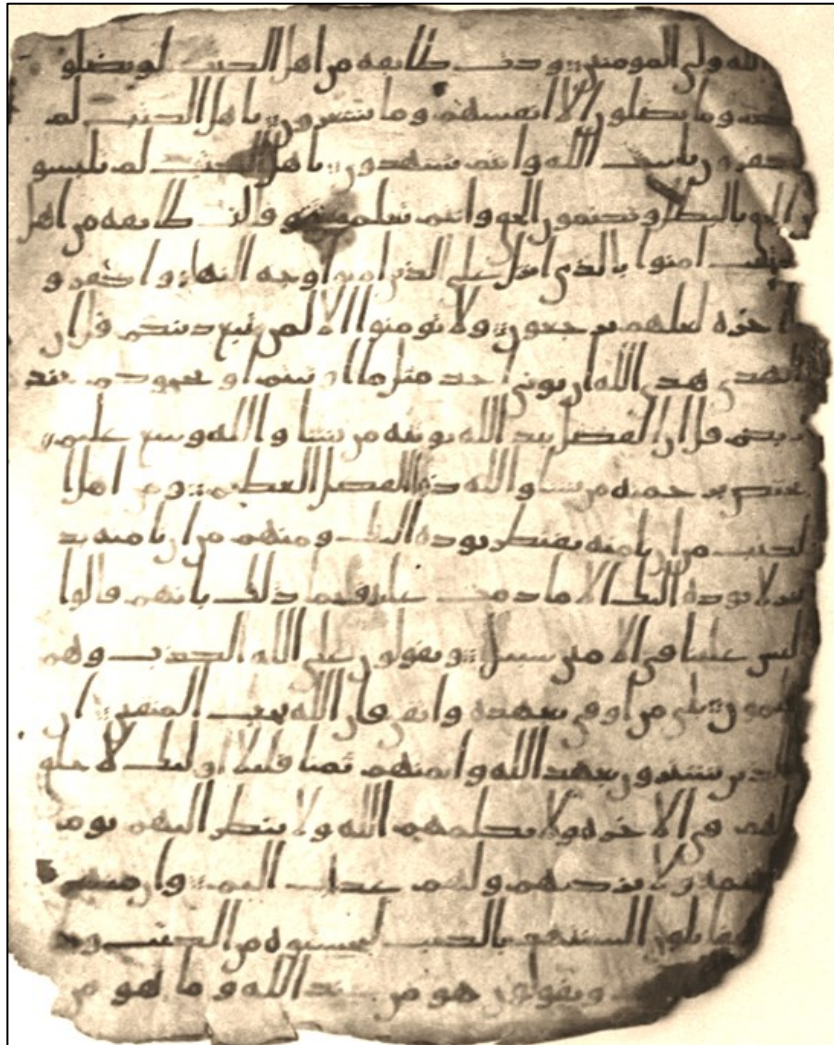 الله ولى المومنين ودت طايفه من اهل الكتب لو يضلو
نكم وما يضلون الا انفسهم وما يشعرون ياهل الكتب لم
تكفرون بايت الله وانتم تشهدون ياهل الكتب لم تلبسو
ن الحق بالبطل وتكتمون الحق وانتم تعلمون وقالت طايفه من اهل
الكتب امنوا بالذى انزل على الذين امنوا وجه النهار واكفرو
ا اخره لعلهم يرجعون ولا تومنوا الا لمن تبع دينكم قل ان
الهدى هدى الله ان يوتى احد مثل ما اوتيتم او يحجوكم عند
ربكم قل ان الفضل بيد الله يوتيه من يشا والله وسع عليم
يختص برحمته من يشا والله ذو الفضل العظيم ومن اهل ا
لكتب من ان تامنه بقنطر يوده اليك ومنهم من ان تامنه بد
ينر لا يوده اليك الا ما دمت عليه قيما ذلك بانهم قالوا
ليس علينا فى الامين سبيل ويقولون على الله الكذب وهم
يعلمون بلى من اوفى بعهده واتقى فان الله يحب المتقين ان
الذين يشترون بعهد الله وايمنهم ثمنا قليلا اوليك لا خلق
لهم فى الاخره ولا يكلمهم الله ولا ينظر اليهم يوم
القيمه ولا يزكيهم ولهم عذاب اليم وان منهم
لفريقا يلون السنتهم بالكتب لتحسبوه من الكتب وما
ويقولون هو من عند الله وما هو من